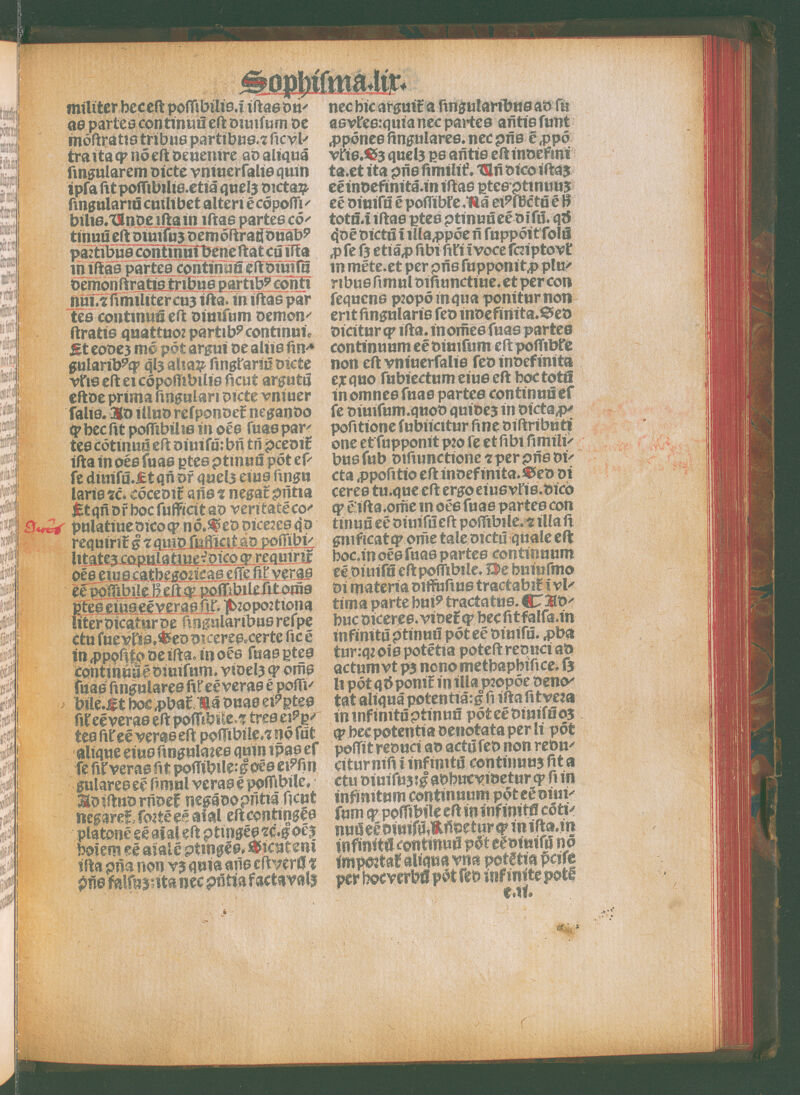 Sophisma.lix.
militer hec est possibilis.ī istas du⸗
as partes continuū est diuisum de
mōstratis tribus partibus.⁊ sic vl⸗
tra ita ꝙ nō est deuenire ad aliquā
singularem dicte vniuersalis quin
ipsa sit possibilis.etiā quelꝫ dictaꝝ
singulariū cuilibet alteri ē cōpossi⸗
bilis.Unde ista in istas partes cō⸗
tinuū est diuisuꝫ demōstratꝭ duabꝰ
partibus continui bene stat cū ista
in istas partes continuū est diuisū
demonstratis tribus partibꝰ conti
nui.⁊ similiter cuꝫ ista. in istas par
tes continuū est diuisum demon⸗
stratis quattuor partibꝰ continui.
Et eodeꝫ mō pōt argui de aliis sin⸗
gularibꝰꝙ qͥlꝫ aliaꝝ singłariū dicte
vłis est ei cōpossibilis sicut argutū
est de prima singulari dicte vniuer
salis. Ad illud respondet̄ negando
ꝙ hec sit possibilis in oēs suas par⸗
tes cōtinuū est diuisū: bn̄ tn̄ ꝯcedit̄
ista in oēs suas ꝑtes ꝯtinuū pōt es⸗
se diuisū. Et qn̄ dr̄ quelꝫ eius singu
laris ⁊c̄. cōcedit̄ an̄s ⁊ negat̄ ꝯn̄tia
Et qn̄ dr̄ hoc sufficit ad veritatē co⸗
pulatiue dico ꝙ nō. Sed diceres qͥd
requirit̄ gͦ ⁊ quid sufficit ad possibi⸗
litateꝫ copulatiue? dico ꝙ requirit̄
oēs eius cathegoricas esse sil̄ veras
eē possibile ꝧ est ꝙ possibile sit om̄s
ꝑtes eius eē veras sil̄. Proportiona
liter dicatur de singularibus respe
ctu sue vłis. Sed diceres.certe sic ē
in ꝓposito de ista. in oēs suas ꝑtes
continuū ē diuisum. videlꝫ ꝙ om̄s
suas singulares sil̄ eē veras ē possi⸗
bile. Et hoc ꝓbat̄. Nā duas eiꝰ ꝑtes
sil̄ eē veras est possibile.⁊ tres eiꝰ ꝑ⸗
tes sil̄ eē veras est possibile.⁊ nō sūt
alique eius singulares quin ip̄as es
se sil̄ veras sit possibile: gͦ oēs eiꝰ sin
gulares eē simul veras ē possibile.
Ad istud rn̄det̄ negādo ꝯn̄tiā sicut
negaret̄. sortē eē aīal est contingēs
platonē eē aīal est ꝯtingēs ⁊c̄. gͦ oēꝫ
hoīem eē aīalē ꝯtingēs. Sicut eni
ista ꝯn̄a non vꝫ quia an̄s est verū ⁊
ꝯn̄s falsuꝫ: ita nec ꝯn̄tia facta valꝫ
nec hic arguit̄ a singularibus ad su
as vłes: quia nec partes an̄tis sunt
ꝓpōnes singulares. nec ꝯn̄s ē ꝓpō
vłis. Sꝫ quelꝫ ꝑs an̄tis est indefini
ta.et ita ꝯn̄s similit̄. Uñ dico istaꝫ
eē indefinitā.in istas ꝑtes ꝯtinuuꝫ
eē diuisū ē possibłe. Nā eiꝰ sb̄ctū ē ꝧ
totū.ī istas ꝑtes ꝯtinuū eē diūsū. qd̄
qͥdē dictū ī illa ꝓpōe n̄ suppōit solū
ꝓ se sꝫ etiā ꝓ sibi sil̄i ī voce scripto vł
in mēte.et per ꝯn̄s supponit ꝓ plu⸗
ribus simul disiunctiue. et per con
sequens propō in qua ponitur non
erit singularis sed indefinita. Sed
dicitur ꝙ ista. in om̄es suas partes
continuum eē diuisum est possibłe
non est vniuersalis sed indefinita
ex quo subiectum eius est hoc totū
in omnes suas partes continuū es
se diuisum.quod quideꝫ in dicta p⸗
positione subiicitur sine distributi
one et supponit pro se et sibi simili⸗
bus sub disiunctione ⁊ per ꝯn̄s di⸗
cta ꝓpositio est indefinita. Sed di
ceres tu.que est ergo eius vłis.dico
ꝙ ē ista.om̄e in oēs suas partes con
tinuū eē diuisū est possibile.⁊ illa si
gnificat ꝙ om̄e tale dictū quale est
hoc.in oēs suas partes continuum
eē diuisū est possibile. De huiusmo
di materia diffusius tractabit̄ ī vl⸗
tima parte huiꝰ tractatus. ¶ Ad⸗
huc diceres. videt̄ ꝙ hec sit falsa.in
infinitū ꝯtinuū pōt eē diuisū. ꝓba
tur:qꝛ oīs potētia potest reduci ad
actum vt pꝫ nono methaphisice. sꝫ
li pōt qd̄ ponit̄ in illa propōe deno⸗
tat aliquā potentiā: gͦ si ista sit vera
in infinitū ꝯtinuū pōt eē diuisū oꝫ
ꝙ hec potentia denotata per li pōt
possit reduci ad actū sed non redu⸗
citur nisi ī infinitū continuuꝫ sit a
ctu diuisuꝫ: gͦ adhuc videtur ꝙ si in
infinitum continuum pōt eē diui⸗
sum ꝙ possibile est in infinitū cōti⸗
nuū eē diuisū. Rn̄detur ꝙ in ista.in
infinitū continuū pōt eē diuisū nō
importat̄ aliqua vna potētia p̄cise
per hoc verbū pōt sed infinite potē
e.ii.